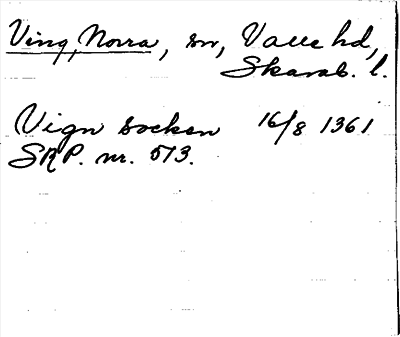 Ving, Norra, sn, Valle hd,
Skarab. l.
Vign socken 16/8 1361
SRP. nr. 573.